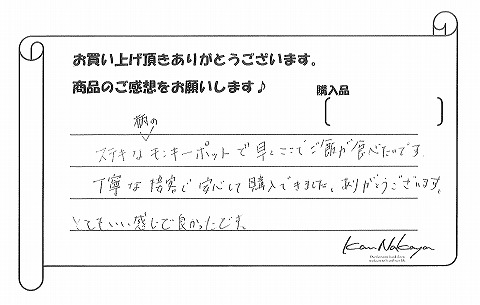 お買い上げ頂きありがとうございます。
商品のご感想をお願いします♪
購入品
柄の
ステキなモンキーポットで早くここでご飯が食べたいです
丁寧な接客で安心して購入できました。ありがとうございます。
とてもいい感じで良かったです。
Kan Nakaya